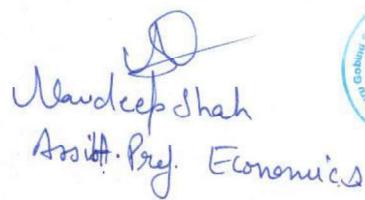 Navdeep Shah
Assitt. Prof. Economics
Gobind